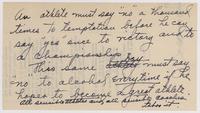 An athlete must say "no" a thousand
times to temptation before he can
say yes once to victory and to
a championship.
"This same boy must say
no to alcohol everytime if he
hopes to become a great athlete.
all sensible athletes and all sensible coaches
taboo it.